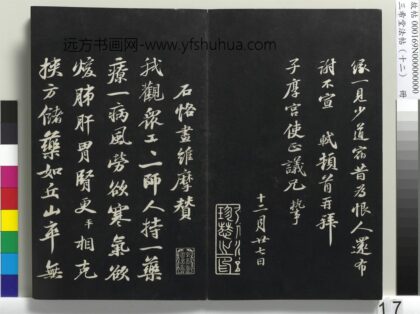 远方书画网-www.yfshuhua.com
故帖 000169N000000000
三希堂法帖（十二） 冊
缘一見少道宿昔为恨人還布
謝不宣 軾頓首再拜
子厚宫使正議兄 執事
十二月廿七日
石恪畫維摩贊
我觀衆工工一師人持一藥
療一病風勞欲寒氣欲
煖肺肝胃腎更相克
挾方儲藥如丘山卒無
17